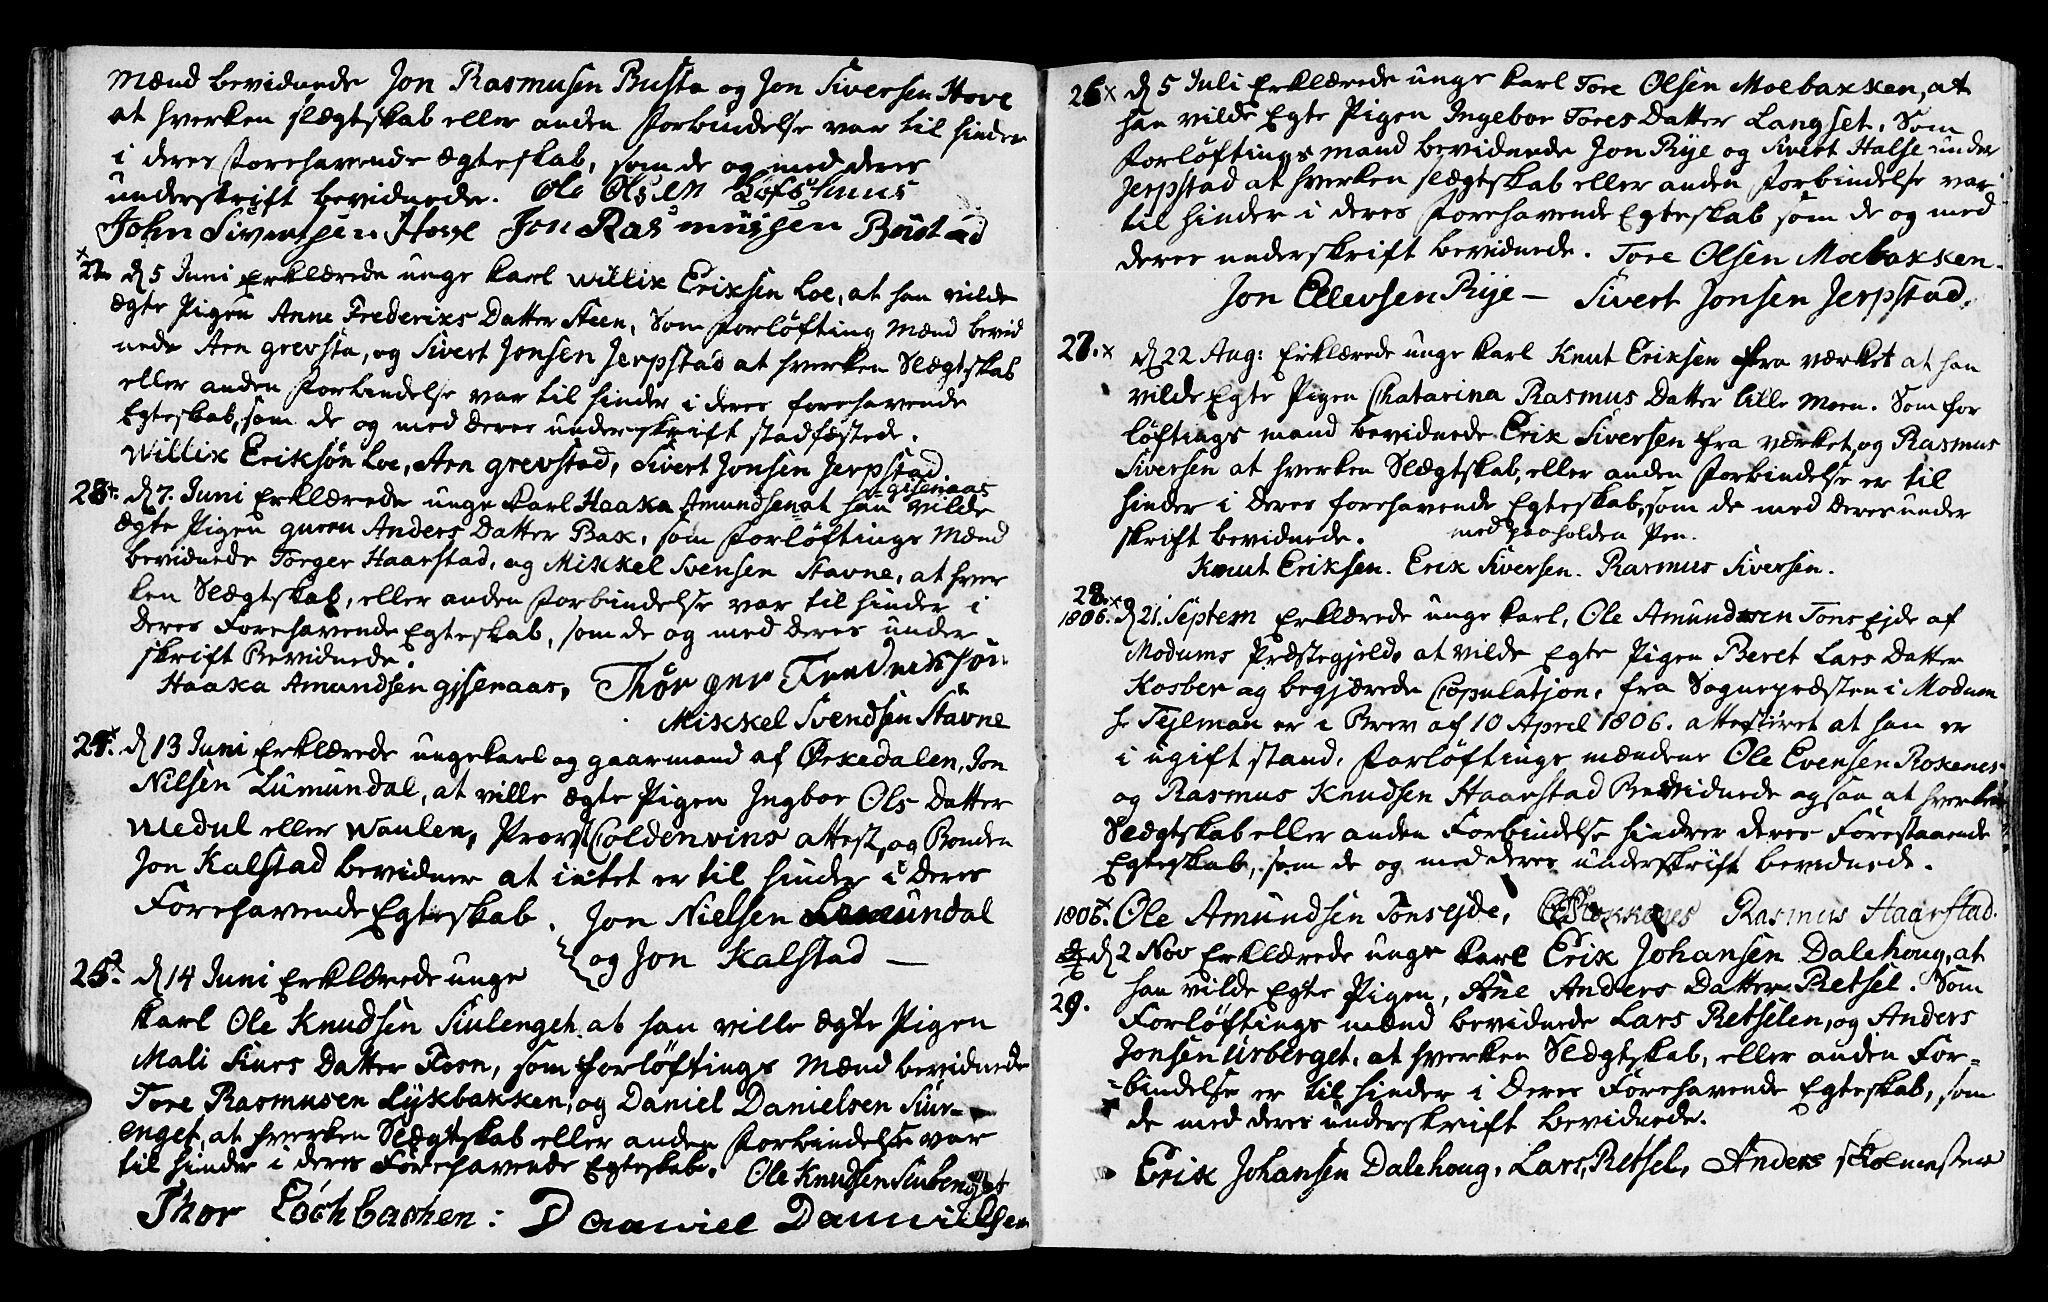 Mænd bevidnede Jon Rasmusen Busta og Jon Siversen Hove
at hverken slægtskab eller anden Forbindelse var til hinder
i deres Forehavende ægteskab, som de og med deres
underskrift bevidnede. Ole Olsen Lofshuus
John Sivertsen Hove Jon Rasmussen Bustad
22. d 5 Juni Erklærede unge Karl Willix Erixsen Loe, at han vilde
ægte Pigen Anne Frederixs Datter Steen, Som Forløfting Mænd bevid
nede Arn grevsta, og Sivert Jonsen Jerpstad at hverken Slægtskab
eller anden Forbindelse var til hinder i deres forehavende
Egteskab, som de og med deres underskrift stadfæstede.
Willix Eriksøn Loe, Arn grevstad, Sivert Jonsen Jerpstad
gisenaas
23. d 7. Juni Erklærede unge Karl Haaka Amundsen at han vilde
ægte Pigen guron Anders Datter Bax, som Forløftings Mænd
bevidnede Torger Haarstad, og Mikkel Svensen Stavne, at hver
ken Slægtskab, eller anden Forbindelse var til hinder i
Deres Forehavende Egteskab, som de og med deres under
skrift Bevidnede.
Haaka Amundsen gisenaas, Thor
Mikkel Svendsen Stavne
24. d 13 Juni Erklærede unge Karl og gaarmand af Ørkedalen, Jon
Nilsen Lumundal, at ville ægte Pigen Ingbor Ols Datter
Medul eller Waulen, Provst Coldenvins attest, og Bonden
Jon Kalstad bevidner at intet er til hinder i Deres
Forehavende Egteskab. Jon Nielsen Lumundal
og Jon Kalstad —
25. d 14 Juni Erklærede unge
Karl Ole Knudsen Siulenget at han ville ægte Pigen
Mali Siurs Datter Foen, som Forløftings Mænd bevidnede
Tore Rasmusen Lykbakken, og Daniel Danielsen Siur-
enget, at hverken Slægtskab eller anden Forbindelse var
til hinder i deres Forehavende Egteskab. Ole Knudsen Siulenget
Thor Löchbachen: Daaniel Danniellsen
26 x d 5 Juli Erklærede unge Karl Tore Olsen Moebakken, at
han vilde Egte Pigen Ingebor Tores Datter Langset. Som
Forløftings mand bevidnede Jon Rije og Sivert Halse under
Jerpstad at hverken slægtskab eller anden Forbindelse var
til hinder i deres Forehavende Egteskab som de og med
deres underskrift bevidnede. Tore Olsen Moebakken.
Jon Ellevsen Rije — Sivert Jonsen Jerpstad.
27. x d 22 Aug: Erklærede unge Karl Knut Eriksen fra værket at han
vilde Egte Pigen Chatarina Rasmus Datter lille Moen. Som for
løftings mand bevidnede Erik Siversen fra værket, og Rasmus
Siversen at hverken Slægtskab, eller anden Forbindelse er til
hinder i Deres forehavende Egteskab, som de med deres under
skrift bevidnede. med paaholden Pen.
Knut Eriksen. Erik Siversen. Rasmus Siversen.
28. x
1806. d 21. Septem Erklærede unge Karl, Ole Amundsen Tons Ejde af
Modums Præstegjeld, at vilde Egte Pigen Beret Lars Datter
Kosber og begjærede Copulatjon, fra Sognepræsten i Modum
hr Tejlman er i Brev af 10 April 1806. attestiret at han er
i ugift stand, Forløftings mændene Ole Evensen Roxenes
og Rasmus Knudsen Haarstad Bevidnede ogsaa at hverken
Slægtskab eller anden Forbindelse hindrer deres Forestaaende
Egteskab, som de og med deres underskrift bevidnede.
1806. Ole Amundsen Tonsejde, Rasmus Haarstad.
d 2 Nov Erklærede unge Karl Erik Johansen Dalehoug, at
29. han vilde Egte Pigen, Ane Anders Datter Retsel. Som
Forløftings mænd bevidnede Lars Retselen, og Anders
Jonsen Urberget, at hverken Slægtskab, eller anden For-
bindelse er til hinder i Deres Forehavende Egteskab, som
de med deres underskrift bevidnede.
Erik Johansen Dalehoug, Lars Retsel, Anders skolmester